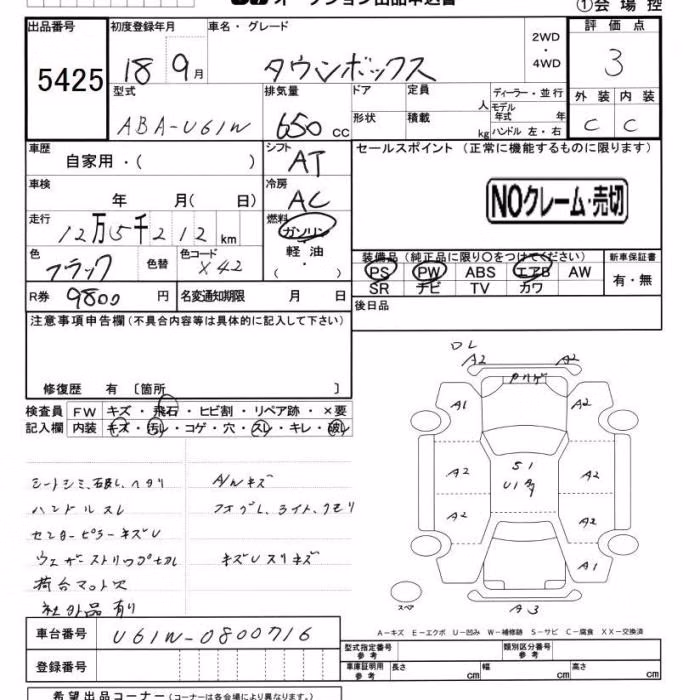 ①会場控
出品番号 初度登録年月 車名・グレード 2WD・4WD 評価点
5425 18 9月 タウンボックス 3
型式 排気量 ドア 定員 人 ディーラー・並行 外装 内装
ABA-U61W 650 cc 形状 積載 kg モデル年式 年 ハンドル 左・右 C C
車歴 自家用・( ) シフト AT セールスポイント (正常に機能するものに限ります)
車検 年 月( 日) 冷房 AC NOクレーム・売切
走行 12万5千212km 燃料 ガソリン・軽油・( )
色 ブラック 色替 色コード X42 装備品(純正品に限り○をつけてください) 新車保証書
PS PW ABS エアB AW 有・無
SR ナビ TV カワ
R券 9800円 名変通知期限 月 日 後日品
注意事項申告欄(不具合内容等は具体的に記入して下さい)
修復歴 有 〔箇所 〕
検査員 FW キズ・飛石・ヒビ割・リペア跡・×要
記入欄 内装 キズ・汚レ・コゲ・穴・スレ・キレ・破レ
ハンドルスレ
センターピラーキズU
荷台マット欠
社外品有り
DL
A2 A2
A1 A2
A2 S1 A2
A2 A2
A1
スペア A3
A-キズ E-エクボ U-凹み W-補修跡 S-サビ C-腐食 XX-交換済
車台番号 U61W-0800716
型式指定番号 参考 類別区分番号 参考
登録番号 車庫証明用 参考 長さ cm 幅 cm 高さ cm
希望出品コーナー(コーナーは各会場により異なります)